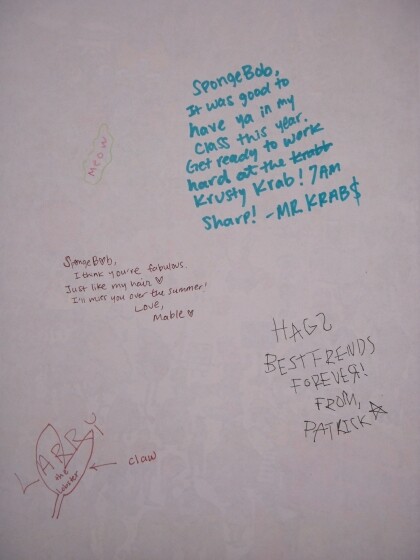 SpongeBob,
It was good to
have ya in my
class this year.
Get ready to work
hard at the krabb
Krusty Krab! 7AM
Sharp! -MR KRAB$
Meow
SpongeBob,
I think you're fabulous.
Just like my hair ♡
I'll miss you over the summer!
Love,
Mable ♡
HAGS
BESTFRENDS
FOREVER!
FROM,
PATRICK ☆
LARRY
the
lobster
claw